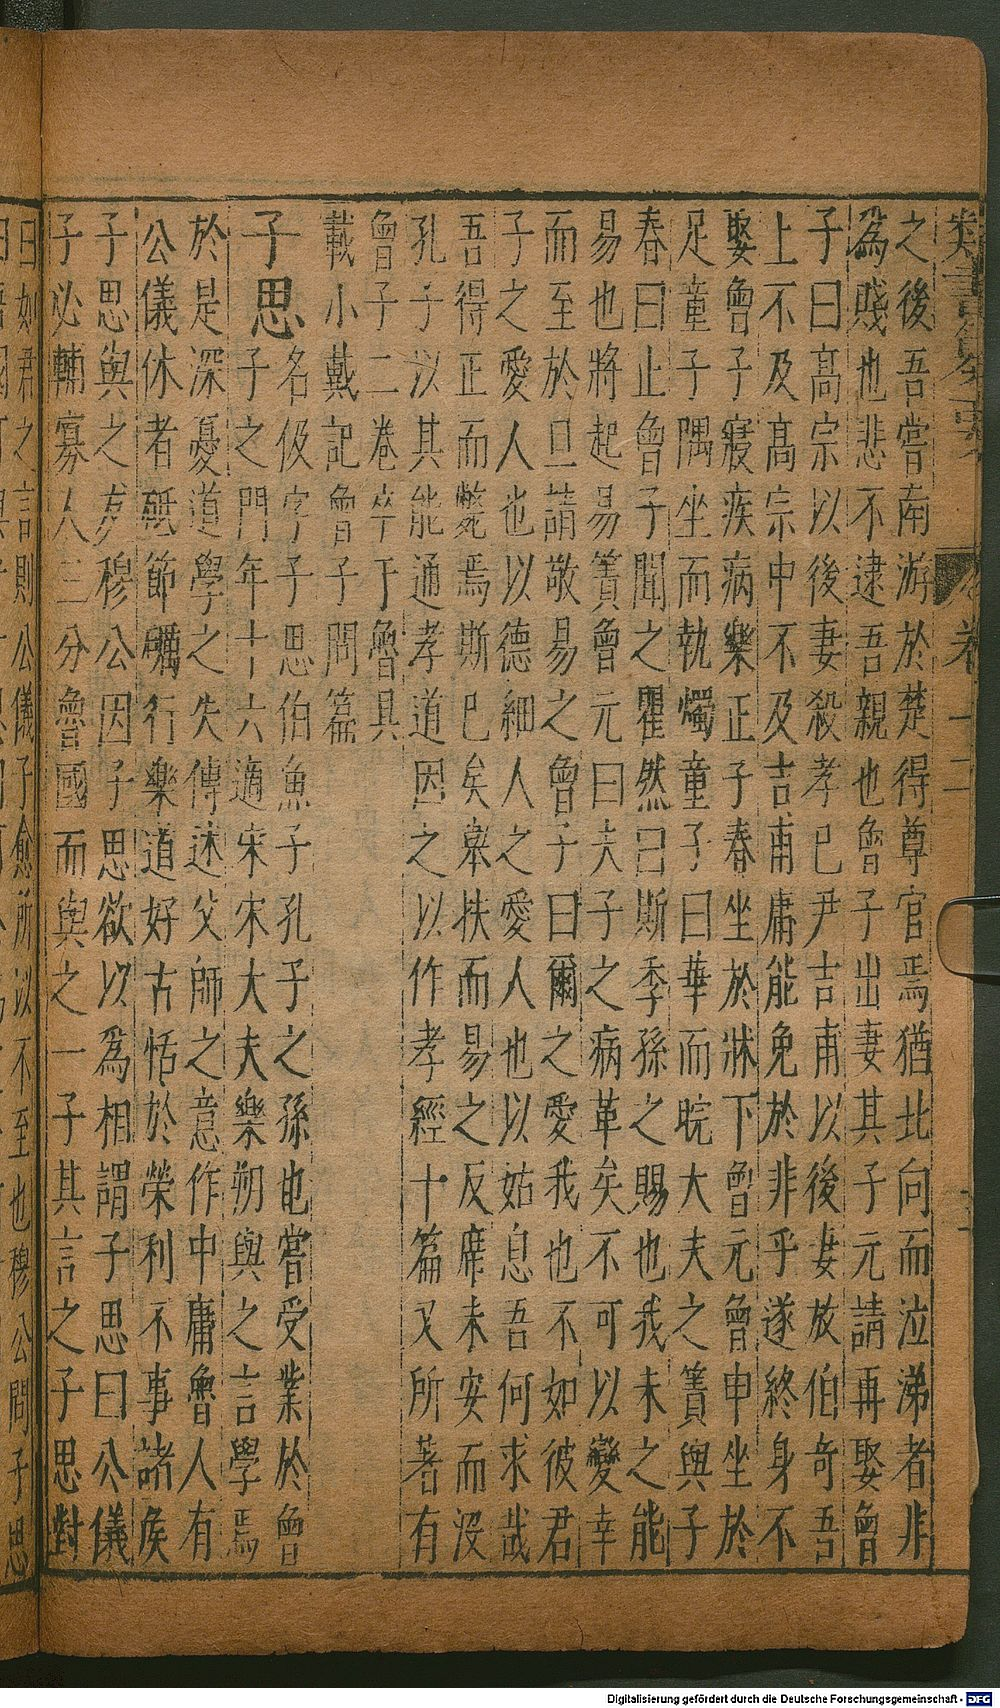 之後吾嘗南游於楚得尊官焉猶北向而泣涕者非
為賤也悲不逮吾親也曾子出妻其子元請再娶曾
子曰高宗以後妻殺孝己尹吉甫以後妻放伯奇吾
上不及高宗中不及吉甫庸能免於非乎遂終身不
娶曾子寢疾病樂正子春坐於牀下曾元曾申坐於
足童子隅坐而執燭童子曰華而睆大夫之簀與子
春曰止曾子聞之瞿然曰斯季孫之賜也我未之能
易也將起易簀曾元曰夫子之病革矣不可以變幸
而至於旦請敬易之曾子曰爾之愛我也不如彼君
子之愛人也以德細人之愛人也以姑息吾何求哉
吾得正而斃焉斯已矣舉扶而易之反席未安而沒
孔子以其能通孝道因之以作孝經十篇又所著有
曾子二卷卒于魯具
載小戴記曾子問篇
子思
名伋字子思伯魚子孔子之孫也嘗受業於曾
子之門年十六適宋宋大夫樂朔與之言學焉
於是深憂道學之失傳述父師之意作中庸魯人有
公儀休者砥節礪行樂道好古恬於榮利不事諸侯
子思與之友穆公因子思欲以為相謂子思曰公儀
子必輔寡人三分魯國而與之一子其言之子思對
曰如君之言則公儀子愈所以不至也穆公問子思
卷
Digitalisierung gefördert durch die Deutsche Forschungsgemeinschaft - DFG